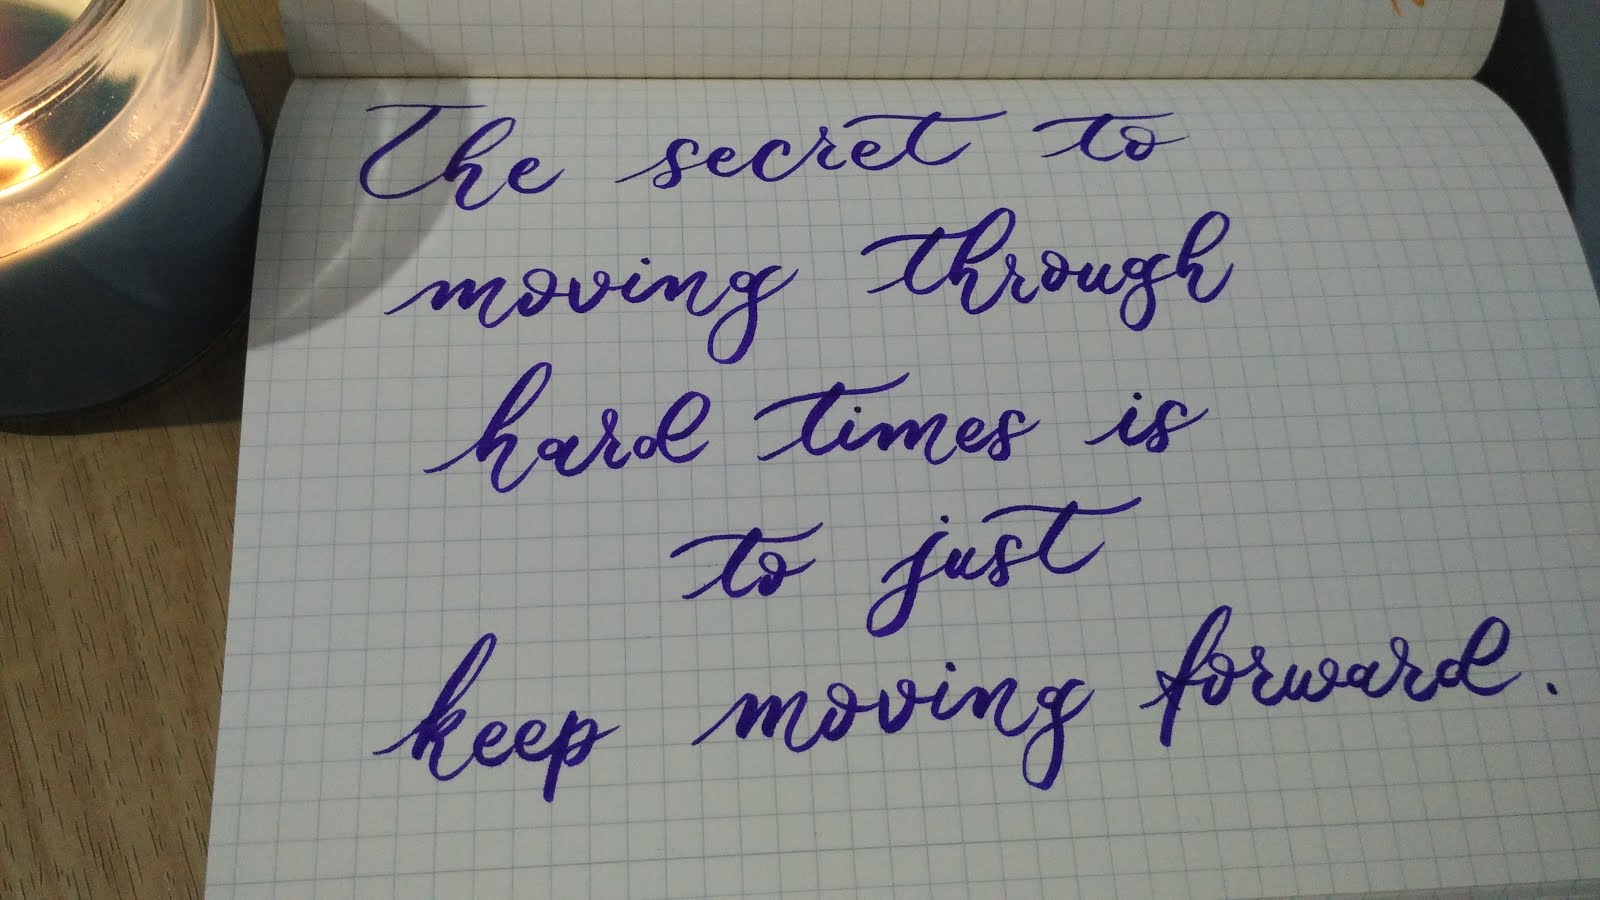 The secret to
moving through
hard times is
to just
keep moving forward.